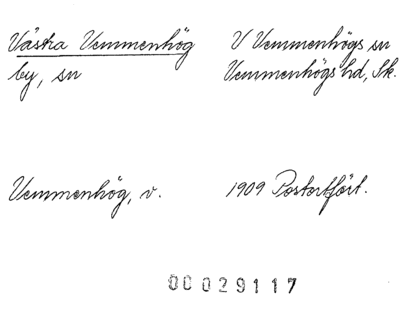 Västra Vemmenhög
V Vemmenhögs sn
by, sn
Vemmenhögs hd, Sk.
Vemmenhög, v.
1909 Postortfört.
00029117